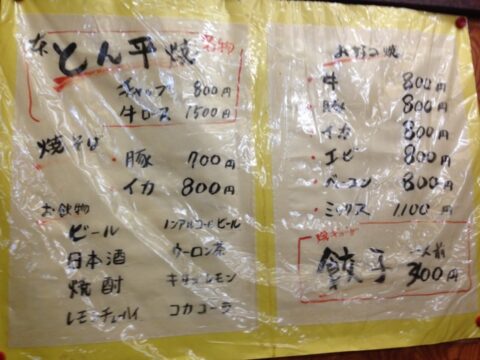 とん平焼 名物
チャップ 800円
牛ロース 1500円
焼そば
豚 700円
イカ 800円
お飲物
ビール
日本酒
焼酎
レモンチューハイ
ノンアルコールビール
ウーロン茶
キリンレモン
コカコーラ
お好み焼
牛 800円
豚 800円
イカ 800円
エビ 800円
ベーコン 800円
ミックス 1100円
餃子 一人前
300円